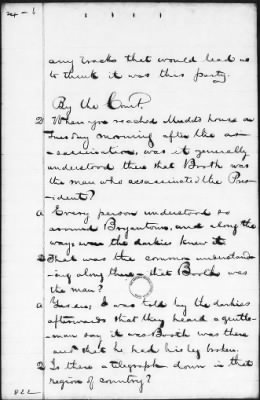 24-6
any tracks that would lead us
to think it was this party.
By the Court.
Q When you reached Mudds house on
Tuesday morning after the as-
-sassination, was it generally
understood there that Booth was
the man who assassinated the Pres-
-ident?
A Every person understood so
around Bryantown, and along the
way, even the darkies knew it
Q That was the common understand-
-ing along there - that Booth was
the man?
A Yes sir, I was told by the darkies
afterwards that they heard a gentle-
-man say it was Booth was there
and that he had his leg broken.
Q Is there a telegraph down in that
region of country?